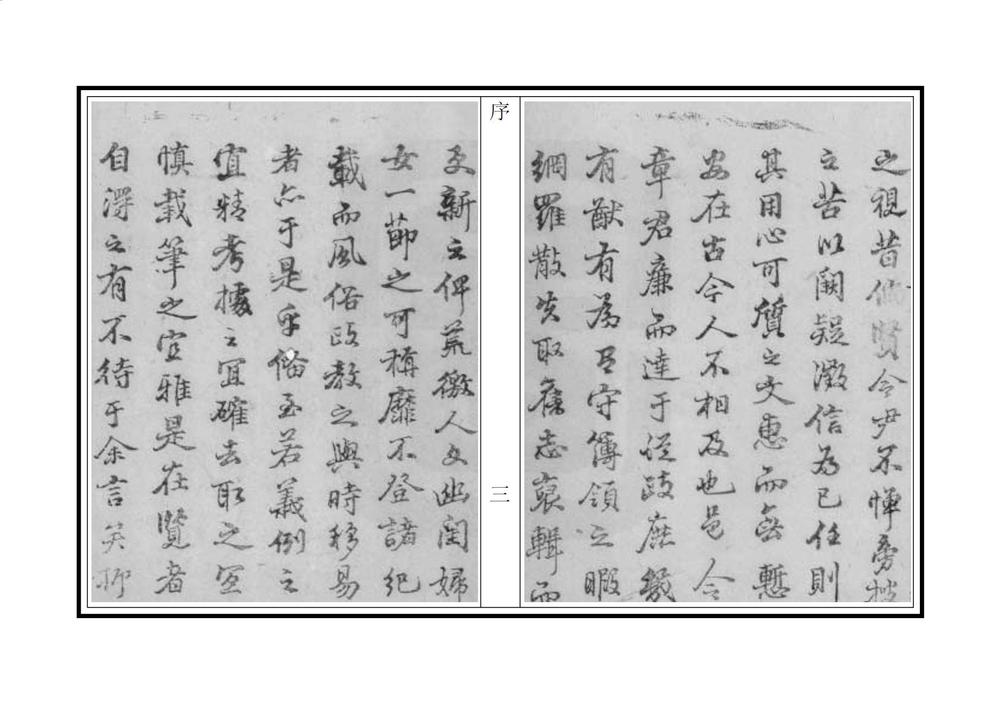 之視昔儷賢今尹不憚旁搜
之苦以闕疑徵信為己任則
其用心可質之文惠而無慙
安在古今人不相及也邑令
章君廉而達于從政庶幾
有猷有為有守簿領之暇
網羅散失取舊志裒輯而
更新之俾荒徼人文幽閨婦
女一節之可稱靡不登諸紀
載而風俗政教之與時移易
者亦于是乎備至若義例之
宜精考據之宜確去取之宜
慎載筆之宜雅是在覽者
自得之有不待于余言矣抑
序
三